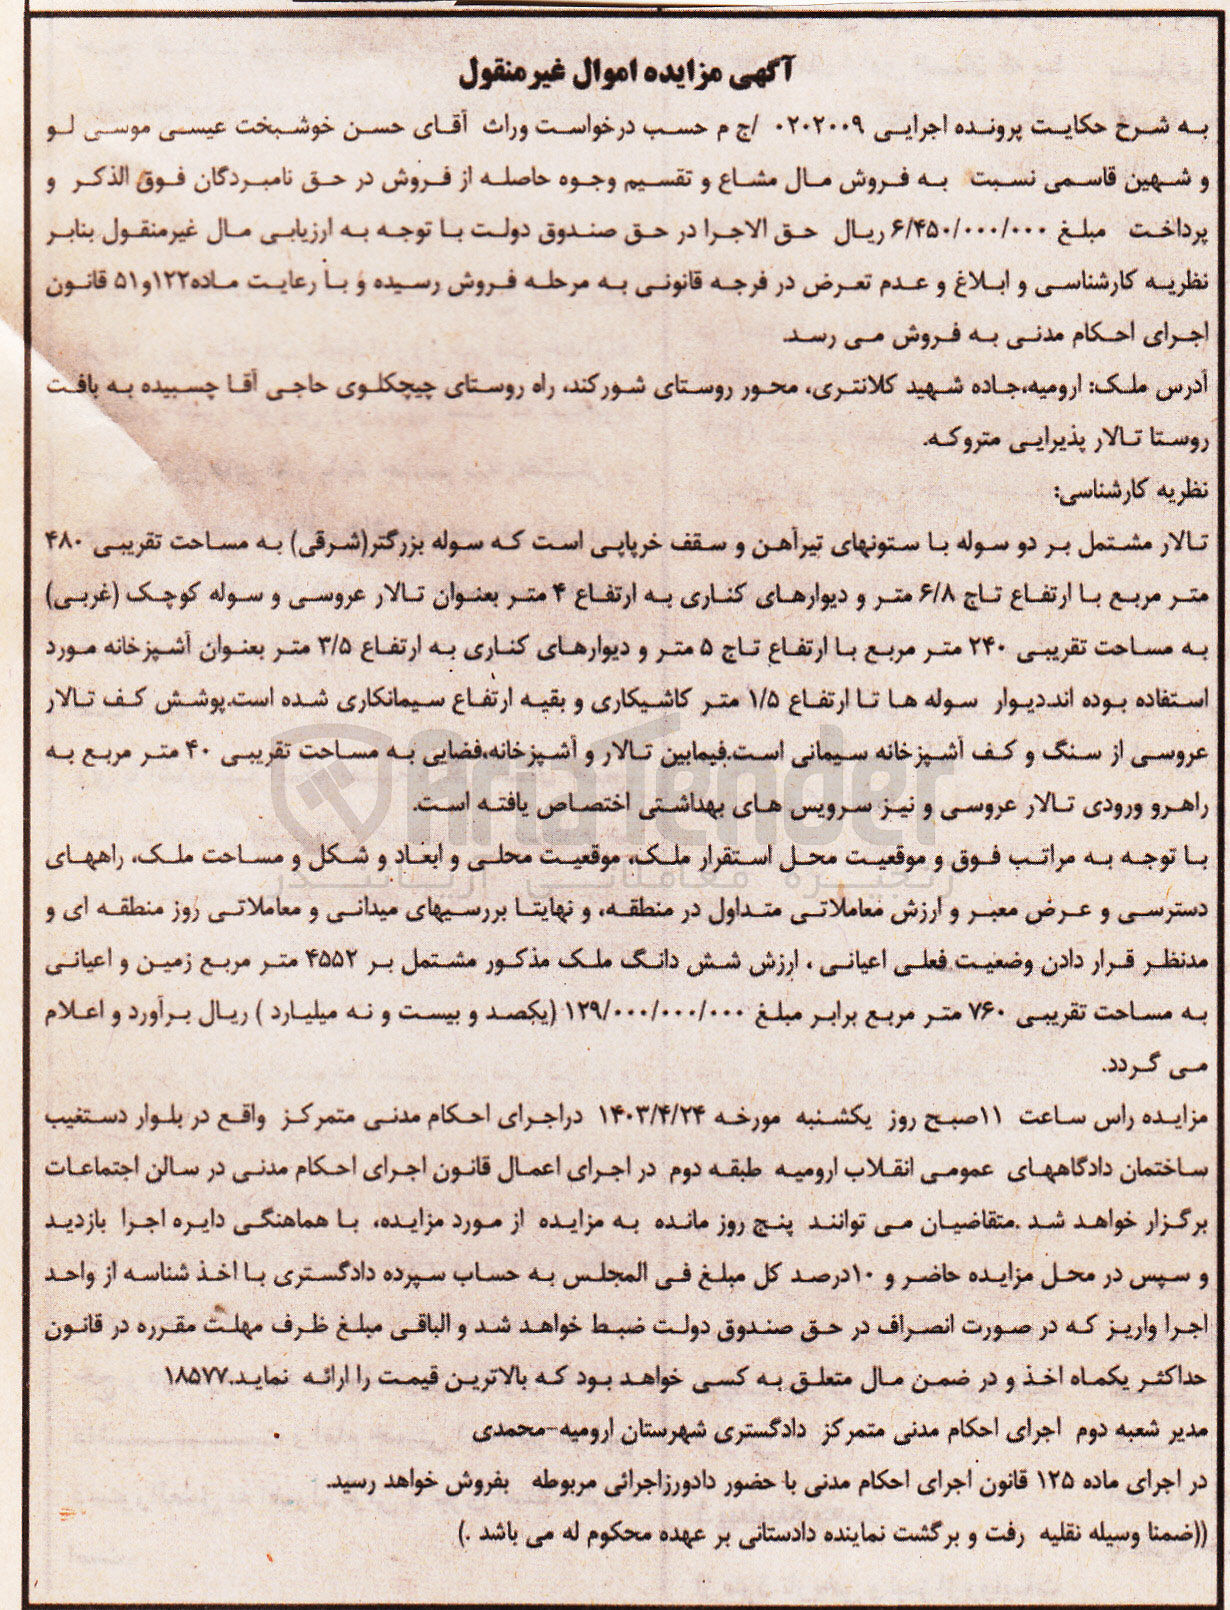 آگهی مزایده اموال غیرمنقول
به شرح حکایت پرونده اجرایی ۰۲۰۲۰۰۹ /ج م حسب درخواست وراث آقای حسن خوشبخت عیسی موسی لو
و شهین قاسمی نسبت به فروش مال مشاع و تقسیم وجوه حاصله از فروش در حق نامبردگان فوق الذکر و
پرداخت مبلغ ۶/۴۵۰/۰۰۰/۰۰۰ ریال حق الاجرا در حق صندوق دولت با توجه به ارزیابی مال غیرمنقول بنابر
نظریه کارشناسی و ابلاغ و عدم تعرض در فرجه قانونی به مرحله فروش رسیده و با رعایت ماده۱۲۲و۵۱ قانون
اجرای احکام مدنی به فروش می رسد.
آدرس ملک: ارومیه،جاده شهید کلانتری، محور روستای شورکند، راه روستای چیچکلوی حاجی آقا چسبیده به بافت
روستا تالار پذیرایی متروکه.
نظریه کارشناسی:
تالار مشتمل بر دو سوله با ستونهای تیرآهن و سقف خرپایی است که سوله بزرگتر(شرقی) به مساحت تقریبی ۴۸۰
متر مربع با ارتفاع تاج ۶/۸ متر و دیوارهای کناری به ارتفاع ۴ متر بعنوان تالار عروسی و سوله کوچک (غربی)
به مساحت تقریبی ۲۴۰ متر مربع با ارتفاع تاج ۵ متر و دیوارهای کناری به ارتفاع ۳/۵ متر بعنوان آشپزخانه مورد
استفاده بوده اند.دیوار سوله ها تا ارتفاع ۱/۵ متر کاشیکاری و بقیه ارتفاع سیمانکاری شده است.پوشش کف تالار
عروسی از سنگ و کف آشپزخانه سیمانی است.فیمابین تالار و آشپزخانه،فضایی به مساحت تقریبی ۴۰ متر مربع به
راهرو ورودی تالار عروسی و نیز سرویس های بهداشتی اختصاص یافته است.
با توجه به مراتب فوق و موقعیت محل استقرار ملک، موقعیت محلی و ابعاد و شکل و مساحت ملک، راههای
دسترسی و عرض معبر و ارزش معاملاتی متداول در منطقه، و نهایتا بررسیهای میدانی و معاملاتی روز منطقه ای و
مدنظر قرار دادن وضعیت فعلی اعیانی ، ارزش شش دانگ ملک مذکور مشتمل بر ۴۵۵۲ متر مربع زمین و اعیانی
به مساحت تقریبی ۷۶۰ متر مربع برابر مبلغ ۱۲۹/۰۰۰/۰۰۰/۰۰۰ (یکصد و بیست و نه میلیارد ) ریال برآورد و اعلام
می گردد.
مزایده راس ساعت ۱۱صبح روز یکشنبه مورخه ۱۴۰۳/۴/۲۴ دراجرای احکام مدنی متمرکز واقع در بلوار دستغیب
ساختمان دادگاههای عمومی انقلاب ارومیه طبقه دوم در اجرای اعمال قانون اجرای احکام مدنی در سالن اجتماعات
برگزار خواهد شد .متقاضیان می توانند پنج روز مانده به مزایده از مورد مزایده، با هماهنگی دایره اجرا بازدید
و سپس در محل مزایده حاضر و ۱۰درصد کل مبلغ فی المجلس به حساب سپرده دادگستری با اخذ شناسه از واحد
اجرا واریز که در صورت انصراف در حق صندوق دولت ضبط خواهد شد و الباقی مبلغ ظرف مهلت مقرره در قانون
حداکثر یکماه اخذ و در ضمن مال متعلق به کسی خواهد بود که بالاترین قیمت را ارائه نماید.۱۸۵۷۷
مدیر شعبه دوم اجرای احکام مدنی متمرکز دادگستری شهرستان ارومیه-محمدی
در اجرای ماده ۱۲۵ قانون اجرای احکام مدنی با حضور دادورزاجرائی مربوطه بفروش خواهد رسید.
((ضمنا وسیله نقلیه رفت و برگشت نماینده دادستانی بر عهده محکوم له می باشد .)
AriaTender
زنجیره معاملاتی آریا تندر